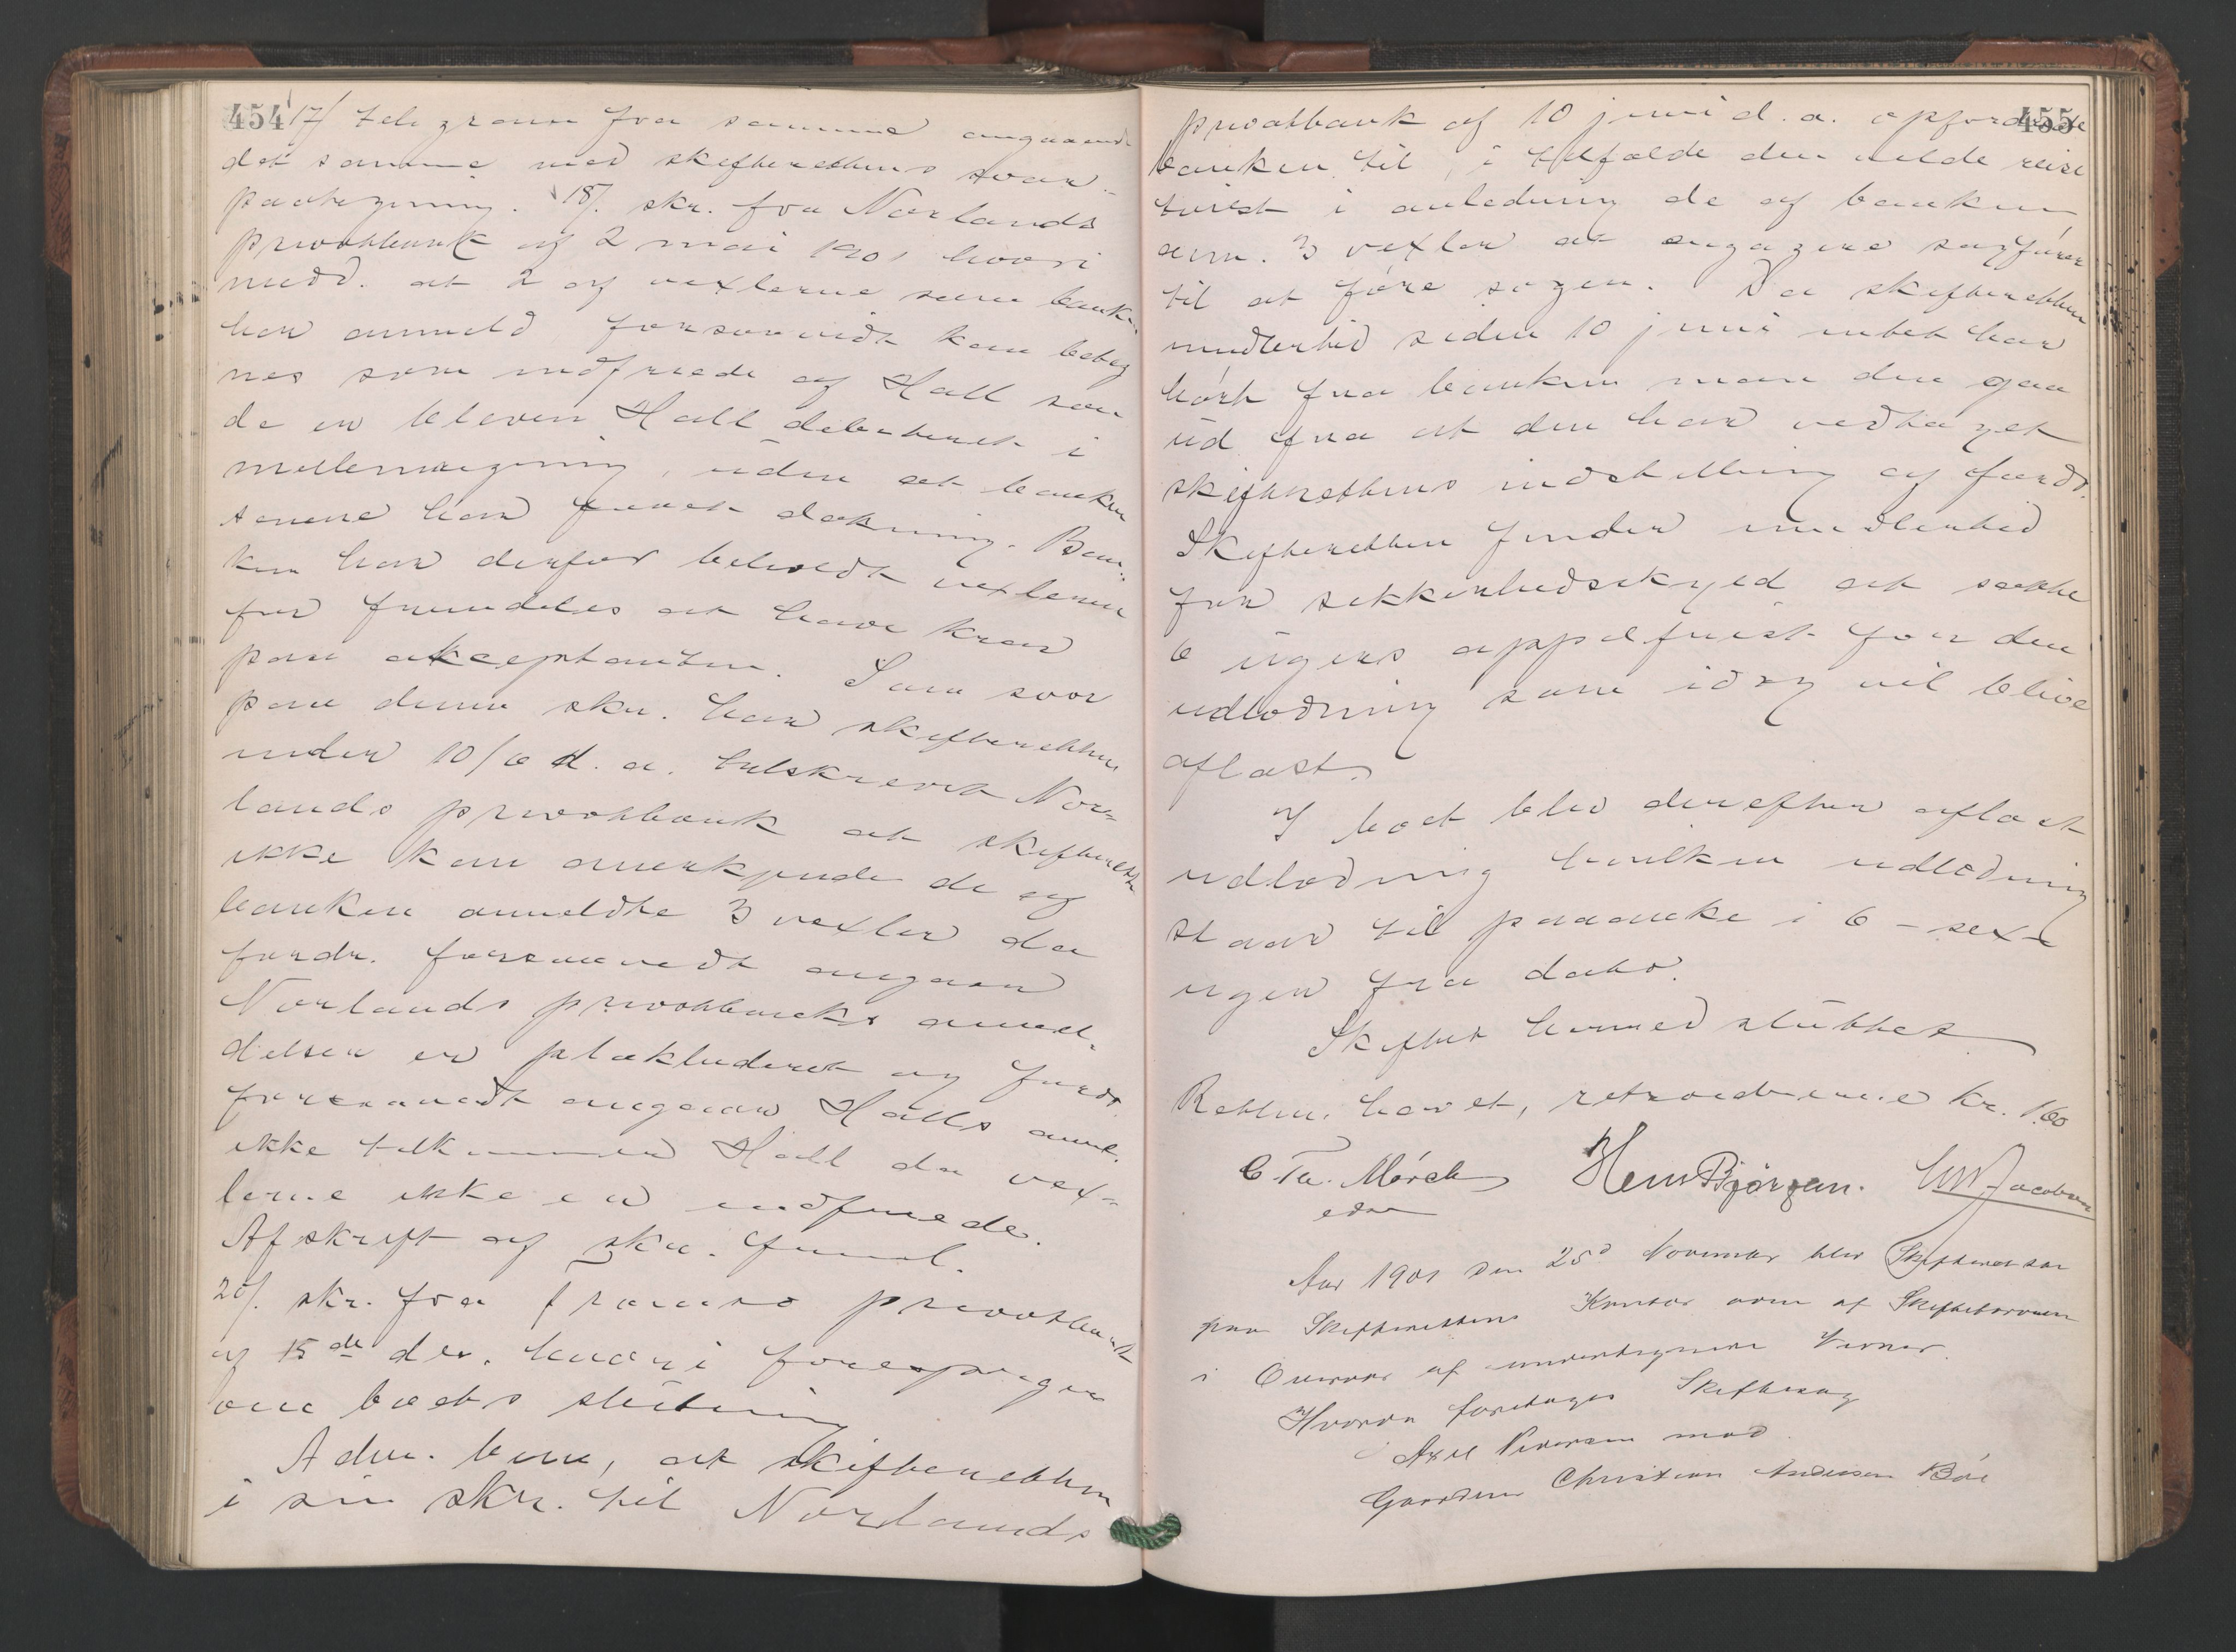 454
17/ telegram fra samme angaaende
det samme med skifterettens svar-
paategning. 18/. skr. fra Norlands
privatbank af 2 mai 1901 hvori
medd. at 2 af vexlerne som banken
har anmeld forsaavidt kan beteg
nes som indfriede af Hall som
de er bleven Hall debiteret i
mellemregning, uden at banken
senere har faaet dækning. Ban-
ken har derfor beholdt vexlerne
for fremdeles at have krav
paa akceptanten. Som svar
paa denne skr. har skifteretten
under 10/6 d. a. tilskrevet Nor-
lands privatbank at skifteretten
ikke kan anerkjende de af
banken anmeldte 3 vexler da
fordr. forsaavidt angaar
Norlands privatbanks anmel-
delsen er plækluderet og fordr.
forsaavidt angaar Halls anm.
ikke tilkommer Hall da vex-
lerne ikke er indfriede.
Afskrift af skr. freml.
20/. skr. fra Tromsø privatbank
af 15de ds. hvori forespørges
om boets slutning
Adm. bem, at skifteretten
i sin skr. til Norlands
455
privatbank af 10 juni d. a. opfordrede
banken til, i tilfælde den vilde reise
tvist i anledning de af banken
anm. 3 vexler at engagere sagfører
til at føre sagen. Da skifteretten
imidlertid siden 10 juni intet har
hørt fra banken maa den gaa
ud fra at den har vedtaget
skifterettens indstilling af fordr.
Skifteretten finder imidlertid
for sikkerhedsskyld at sætte
6 ugers appelfrist for den
udlodning som idag vil blive
aflæst.
I boet blev derefter aflæst
udlodning hvilken udlodning
staar til paaanke i 6 - sex -
uger fra dato.
Skiftet hermed sluttet
Retten hævet, retsvidnerne kr. 1.60
C Th. Mørch Herm Bjørgan. Jacobsen
edsv
Aar 1901 den 25d November blev Skifteret sat
paa Skifterettens Kontor adm af Skifteforvalteren
i Overvær af undertegnede Vidner.
Hvorda foretages Skiftesag
Axel Pedersen mod
Gaardbr Christian Andersen Bøe